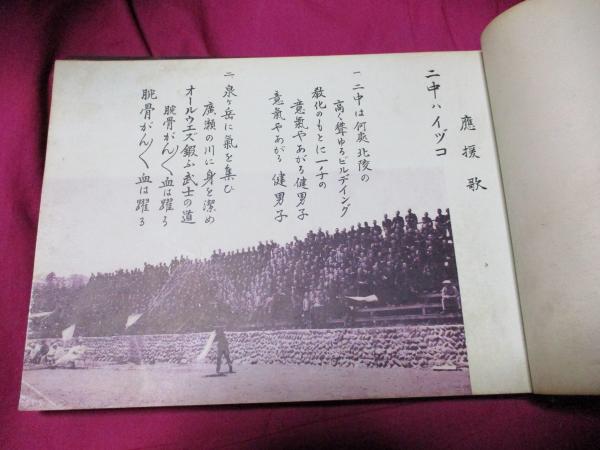 應援歌
二中ハイヅコ
一 二中は何処北陵の
高く聳ゆるビルデイング
教化のもとに一千の
意氣やあがる健男子
意氣やあがる健男子
二 泉ヶ岳に氣を集ひ
廣瀬の川に身を潔め
オールウエズ鍛ふ武士の道
腕骨がん〳〵血は躍る
腕骨がん〳〵血は躍る